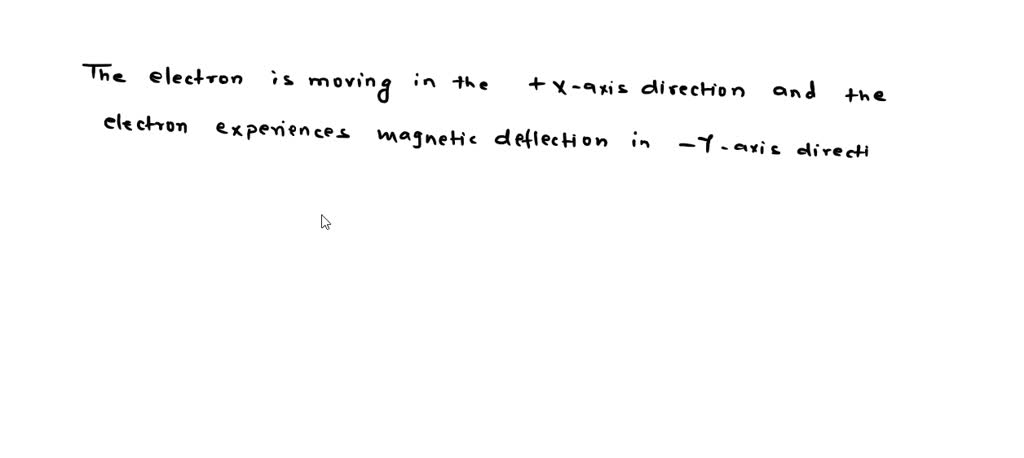 The electron is moving in the +X-axis direction and the
electron experiences magnetic deflection in -Y-axis directi